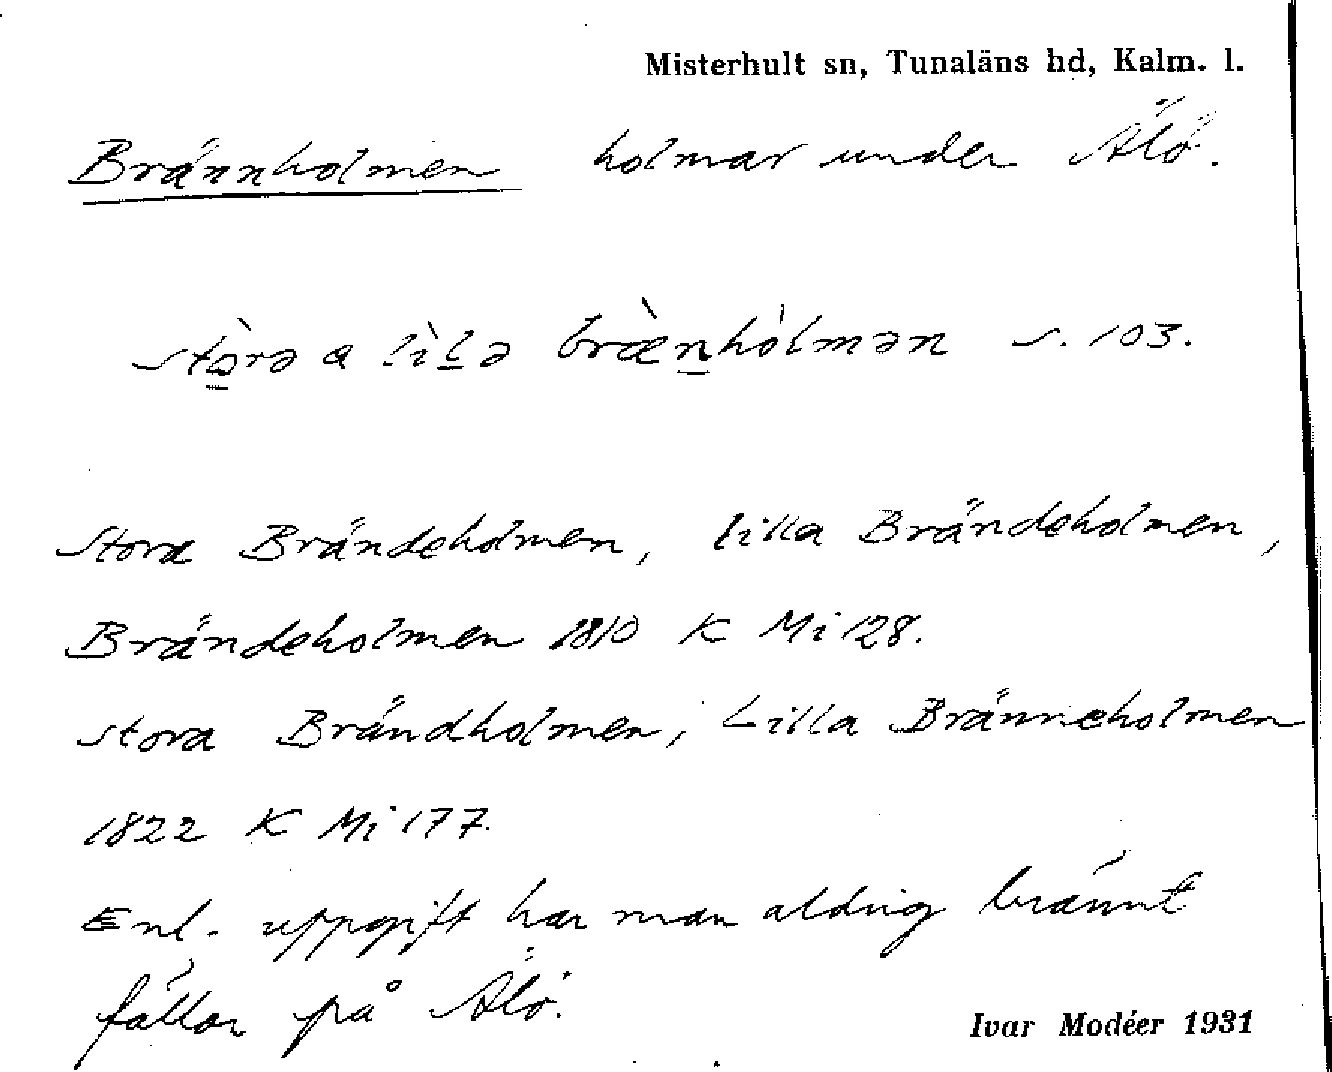 Misterhult sn, Tunaläns hd, Kalm. l.
Brännholmen holmar under Älö.
stòrə a lìlə bræ̀nhòlmən s. 103.
Stora Brändeholmen, lilla Brändeholmen,
Brändeholmen 1810 K Mi 128.
Stora Brändholmen, Lilla Bränneholmen
1822 K Mi 177.
Enl. uppgift har man aldrig bränt
fällor på Älö.
Ivar Modéer 1931